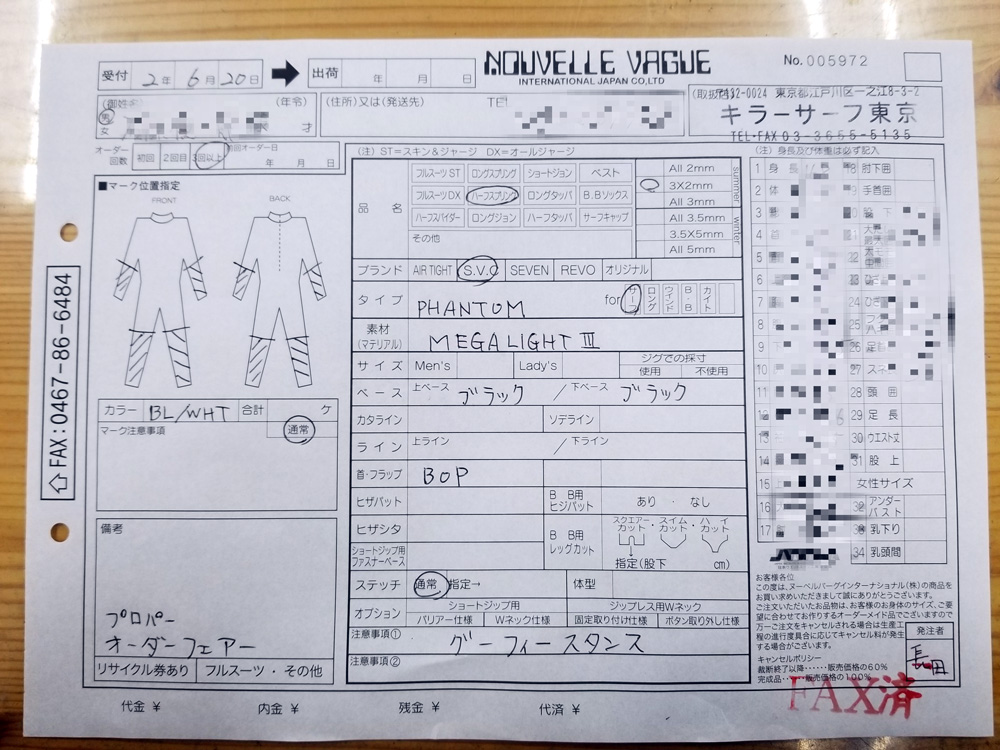 受付 2年 6月 20日
出荷 年 月 日
NOUVELLE VAGUE
INTERNATIONAL JAPAN CO,LTD
No. 005972
(年令)
男
女
才
(住所)又は(発送先)
〒132-0024 東京都江戸川区一之江8-3-2
キラーサーフ東京
TEL・FAX 03-3655-5135
オーダー回数 初回 2回目 3回以上 前回オーダー日 年 月 日
(注) ST=スキン&ジャージ DX=オールジャージ
(注) 身長及び体重は必ず記入
■マーク位置指定
FRONT
BACK
品名
フルスーツST ロングスプリング ショートジョン ベスト
フルスーツDX ハーフスプリング ロングタッパ B.Bソックス
ハーフスパイダー ロングジョン ハーフタッパ サーフキャップ
その他
All 2mm
3X2mm
All 3mm
All 3.5mm
3.5X5mm
All 5mm
summer
winter
ブランド AIR TIGHT S.V.C SEVEN REVO オリジナル
タイプ PHANTOM for サーフ ロング ウインド B・B カイト
素材
(マテリアル)
MEGALIGHT III
サイズ Men's Lady's ジグでの採寸
使用 不使用
ベース 上ベース ブラック /下ベース ブラック
カタライン ソデライン
ライン 上ライン /下ライン
首・フラップ BOP
ヒザパット B B用ヒジパット あり ・ なし
ヒザシタ
ショートジップ用
ファスナーベース
B B用
レッグカット
スクエアーカット・スイムカット・ハイカット
指定(股下 cm)
ステッチ 通常 指定→ 体型
オプション ショートジップ用 ジップレス用Wネック
バリアー仕様 Wネック仕様 固定取り付け仕様 ボタン取り外し仕様
注意事項① グーフィースタンス
注意事項②
カラー BL/WHT 合計 ケ
マーク注意事項 通常
備考
プロパー
オーダーフェアー
リサイクル券あり フルスーツ・その他
⇧FAX:0467-86-6484
1 身長
2 体
3
4
5
6
7
8
9
10
11
13
14
15
16
17
肘下囲
手首囲
股下
27 スネ
28 頭囲
29 足長
30 ウエスト丈
31 股上
女性サイズ
アンダーバスト
乳下り
34 乳頭間
お客様各位
この度は、ヌーベルバーグインターナショナル(株)の商品を
お買い求めいただきまして誠にありがとうございます。
ご注文いただいたお品物は、お客様のお身体のサイズ、ご要
望に合わせてお作りするオーダーメイド品でございますので
万一ご注文をキャンセルされる場合は生産工
程の進行度具合に応じてキャンセル料が発生
する場合がございます。
キャンセルポリシー
裁断終了以降‥‥‥販売価格の60%
完成品‥‥販売価格の100%
発注者
長田
FAX済
代金 ¥ 内金 ¥ 残金 ¥ 代済 ¥